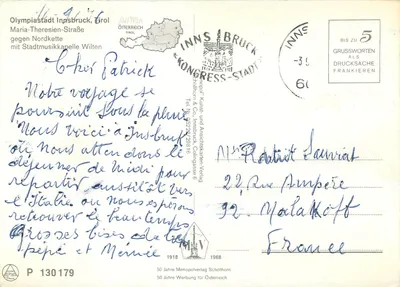 Olympiastadt Innsbruck, Tirol
Maria-Theresien-Straße
gegen Nordkette
mit Stadtmusikkapelle Wilten
ÖSTERREICH
AUSTRIA
INNSBRUCK
KONGRESS-STADT
BIS ZU 5
GRUSSWORTEN
ALS
DRUCKSACHE
FRANKIEREN
Cher Patrick
Notre voyage se
poursuit sous la pluie
Nous voici à Insbruck
où nous attend le
déjeuner de midi pour
repartir aussitôt vers
l'Italie où nous espérons
retrouver le beau temps
Grosses bises de
pépé et Mémie
Mr Patrick
22, Rue Ampère
92. Malakoff
France
1918 1968
50 Jahre
50 Jahre Werbung für Österreich
P 130179